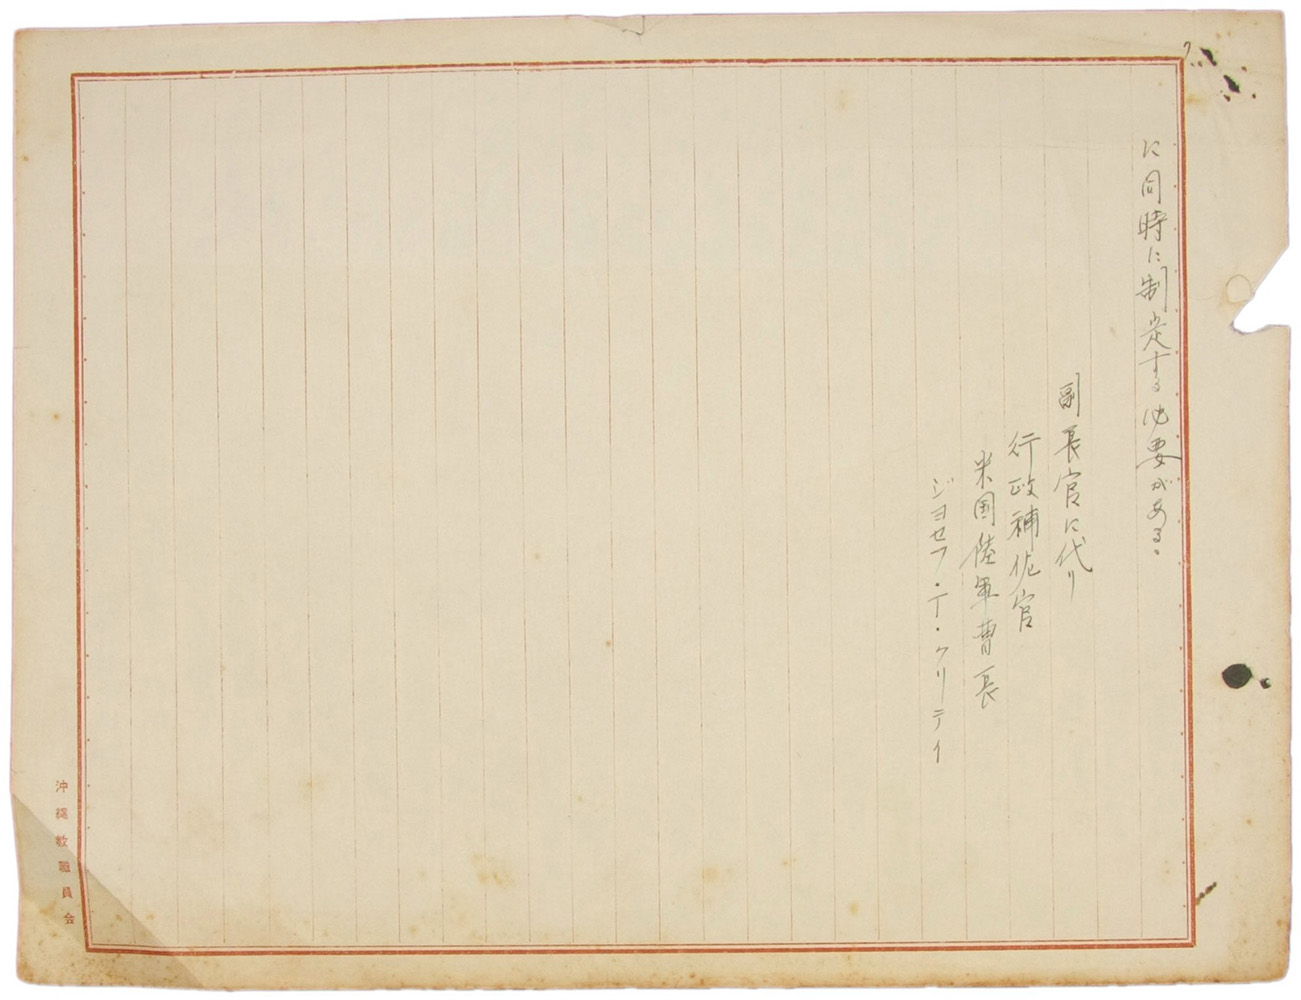 に同時に制定する必要がある。
副長官に代り
行政補佐官
米国陸軍曹長
ジヨセフ・T・クリテイ
沖縄教職員会